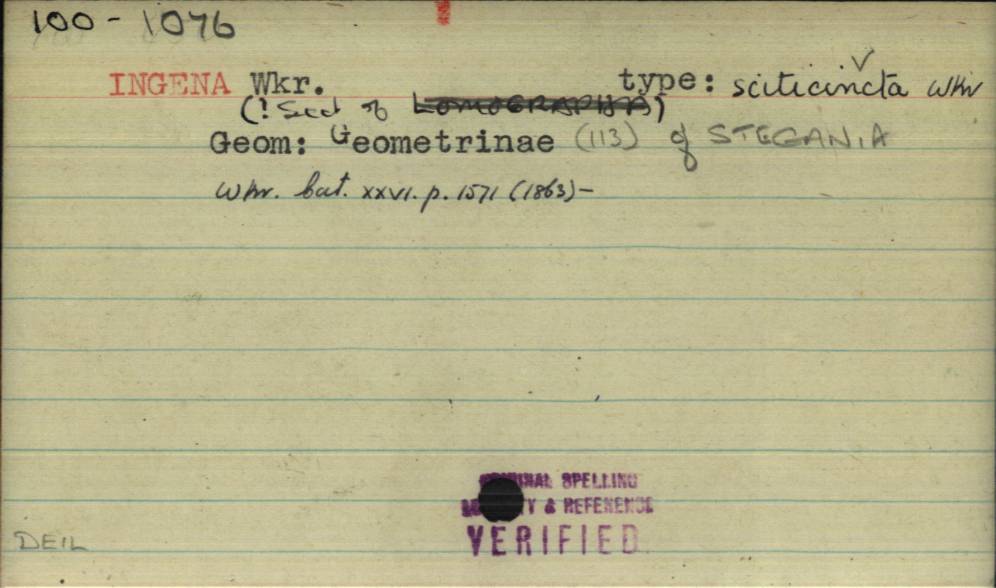 100 - 1076
INGENA Wkr. type: sciticincta Wkr
(! Sect of LOMOGRAPHA)
Geom: Geometrinae (113) of STEGANIA
Wkr. Cat. xxvi. p. 1571 (1863) -
SPELLING
& REFERENCE
VERIFIED
DEIL